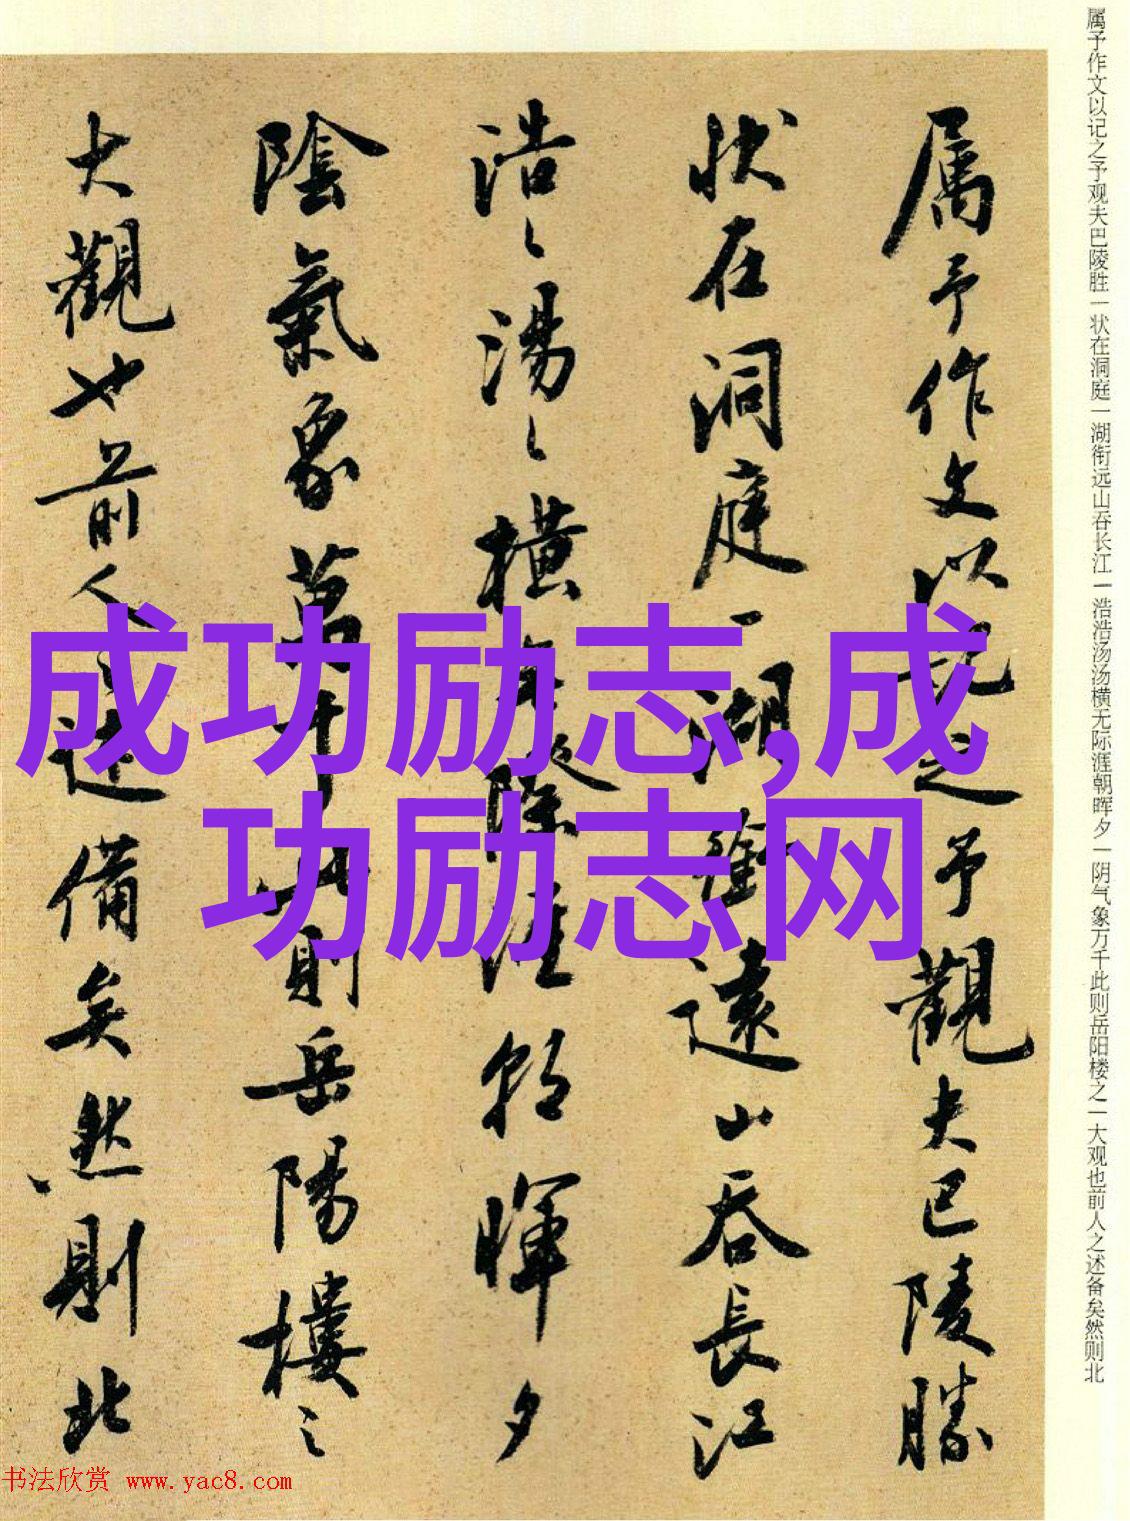 属予作文以记之予观夫巴陵胜一状在洞庭一湖衔远山吞长江一浩浩汤汤横无际涯朝晖夕一阴气象万千此则岳阳楼之一大观也前人之述备矣然则北
属予作文以記之予觀夫巴陵勝
状在洞庭一湖銜遠山吞長江
浩〻湯〻橫無際涯朝暉夕
陰氣象萬千此則岳陽樓之
大觀也前人之述備矣然則北
成功励志,成
功励志网
书法欣赏 www.yac8.com